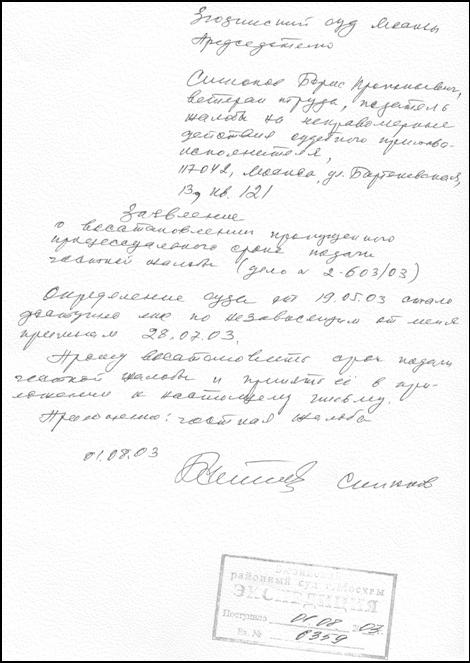 Зюзинский суд Москвы
Председателю
Симонов Борис
ветеран труда, податель
жалобы на неправомерные
действия судебного пристава-
исполнителя,
117042, Москва, ул. Бартеневская,
13, кв. 121
Заявление
о восстановлении пропущенного
процессуального срока подачи
частной жалобы (дело № 2-603/03)
Определение суда от 19.05.03 стало
доступно мне по независящим от меня
причинам 28.07.03.
Прошу восстановить срок подачи
частной жалобы и принять её в при-
ложении к настоящему письму.
Приложение: частная жалоба
01.08.03
районный суд г. Москвы
ЭКСПЕДИЦИЯ
Поступило 01.08. 2003 г.
Вх. № 0359